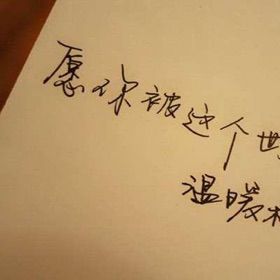 愿你被这个世
温暖相